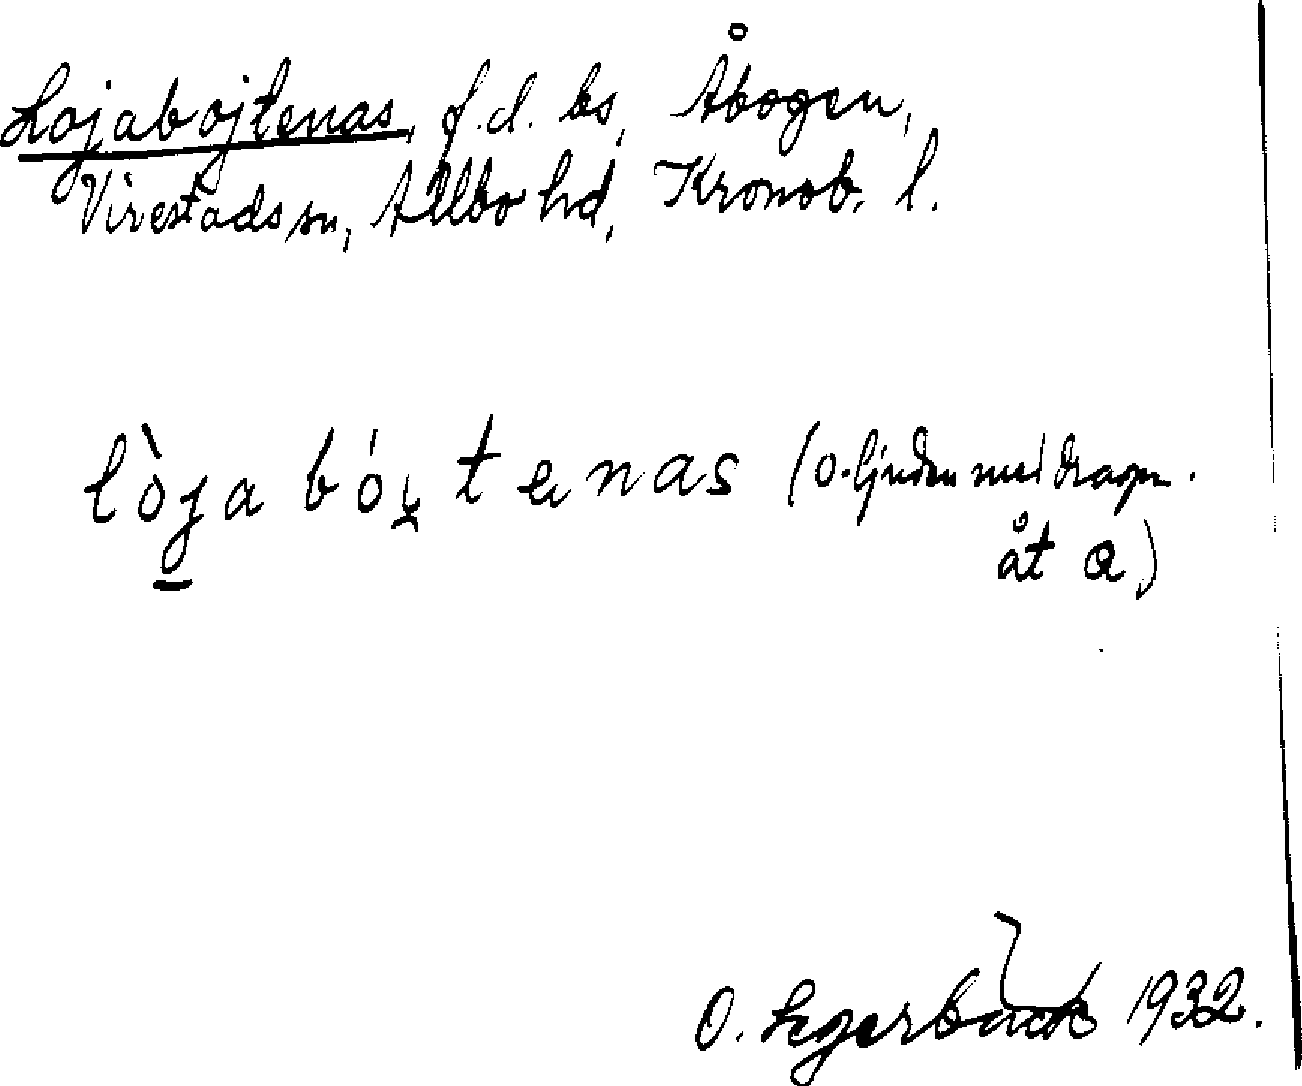 Lojabojtenas, f.d. bs, Åbogen,
Virestads sn, Allbo hd, Kronob. l.
lòja bój tenas (o-ljuden neddragn.
åt a)
O. Lgerback 1932.